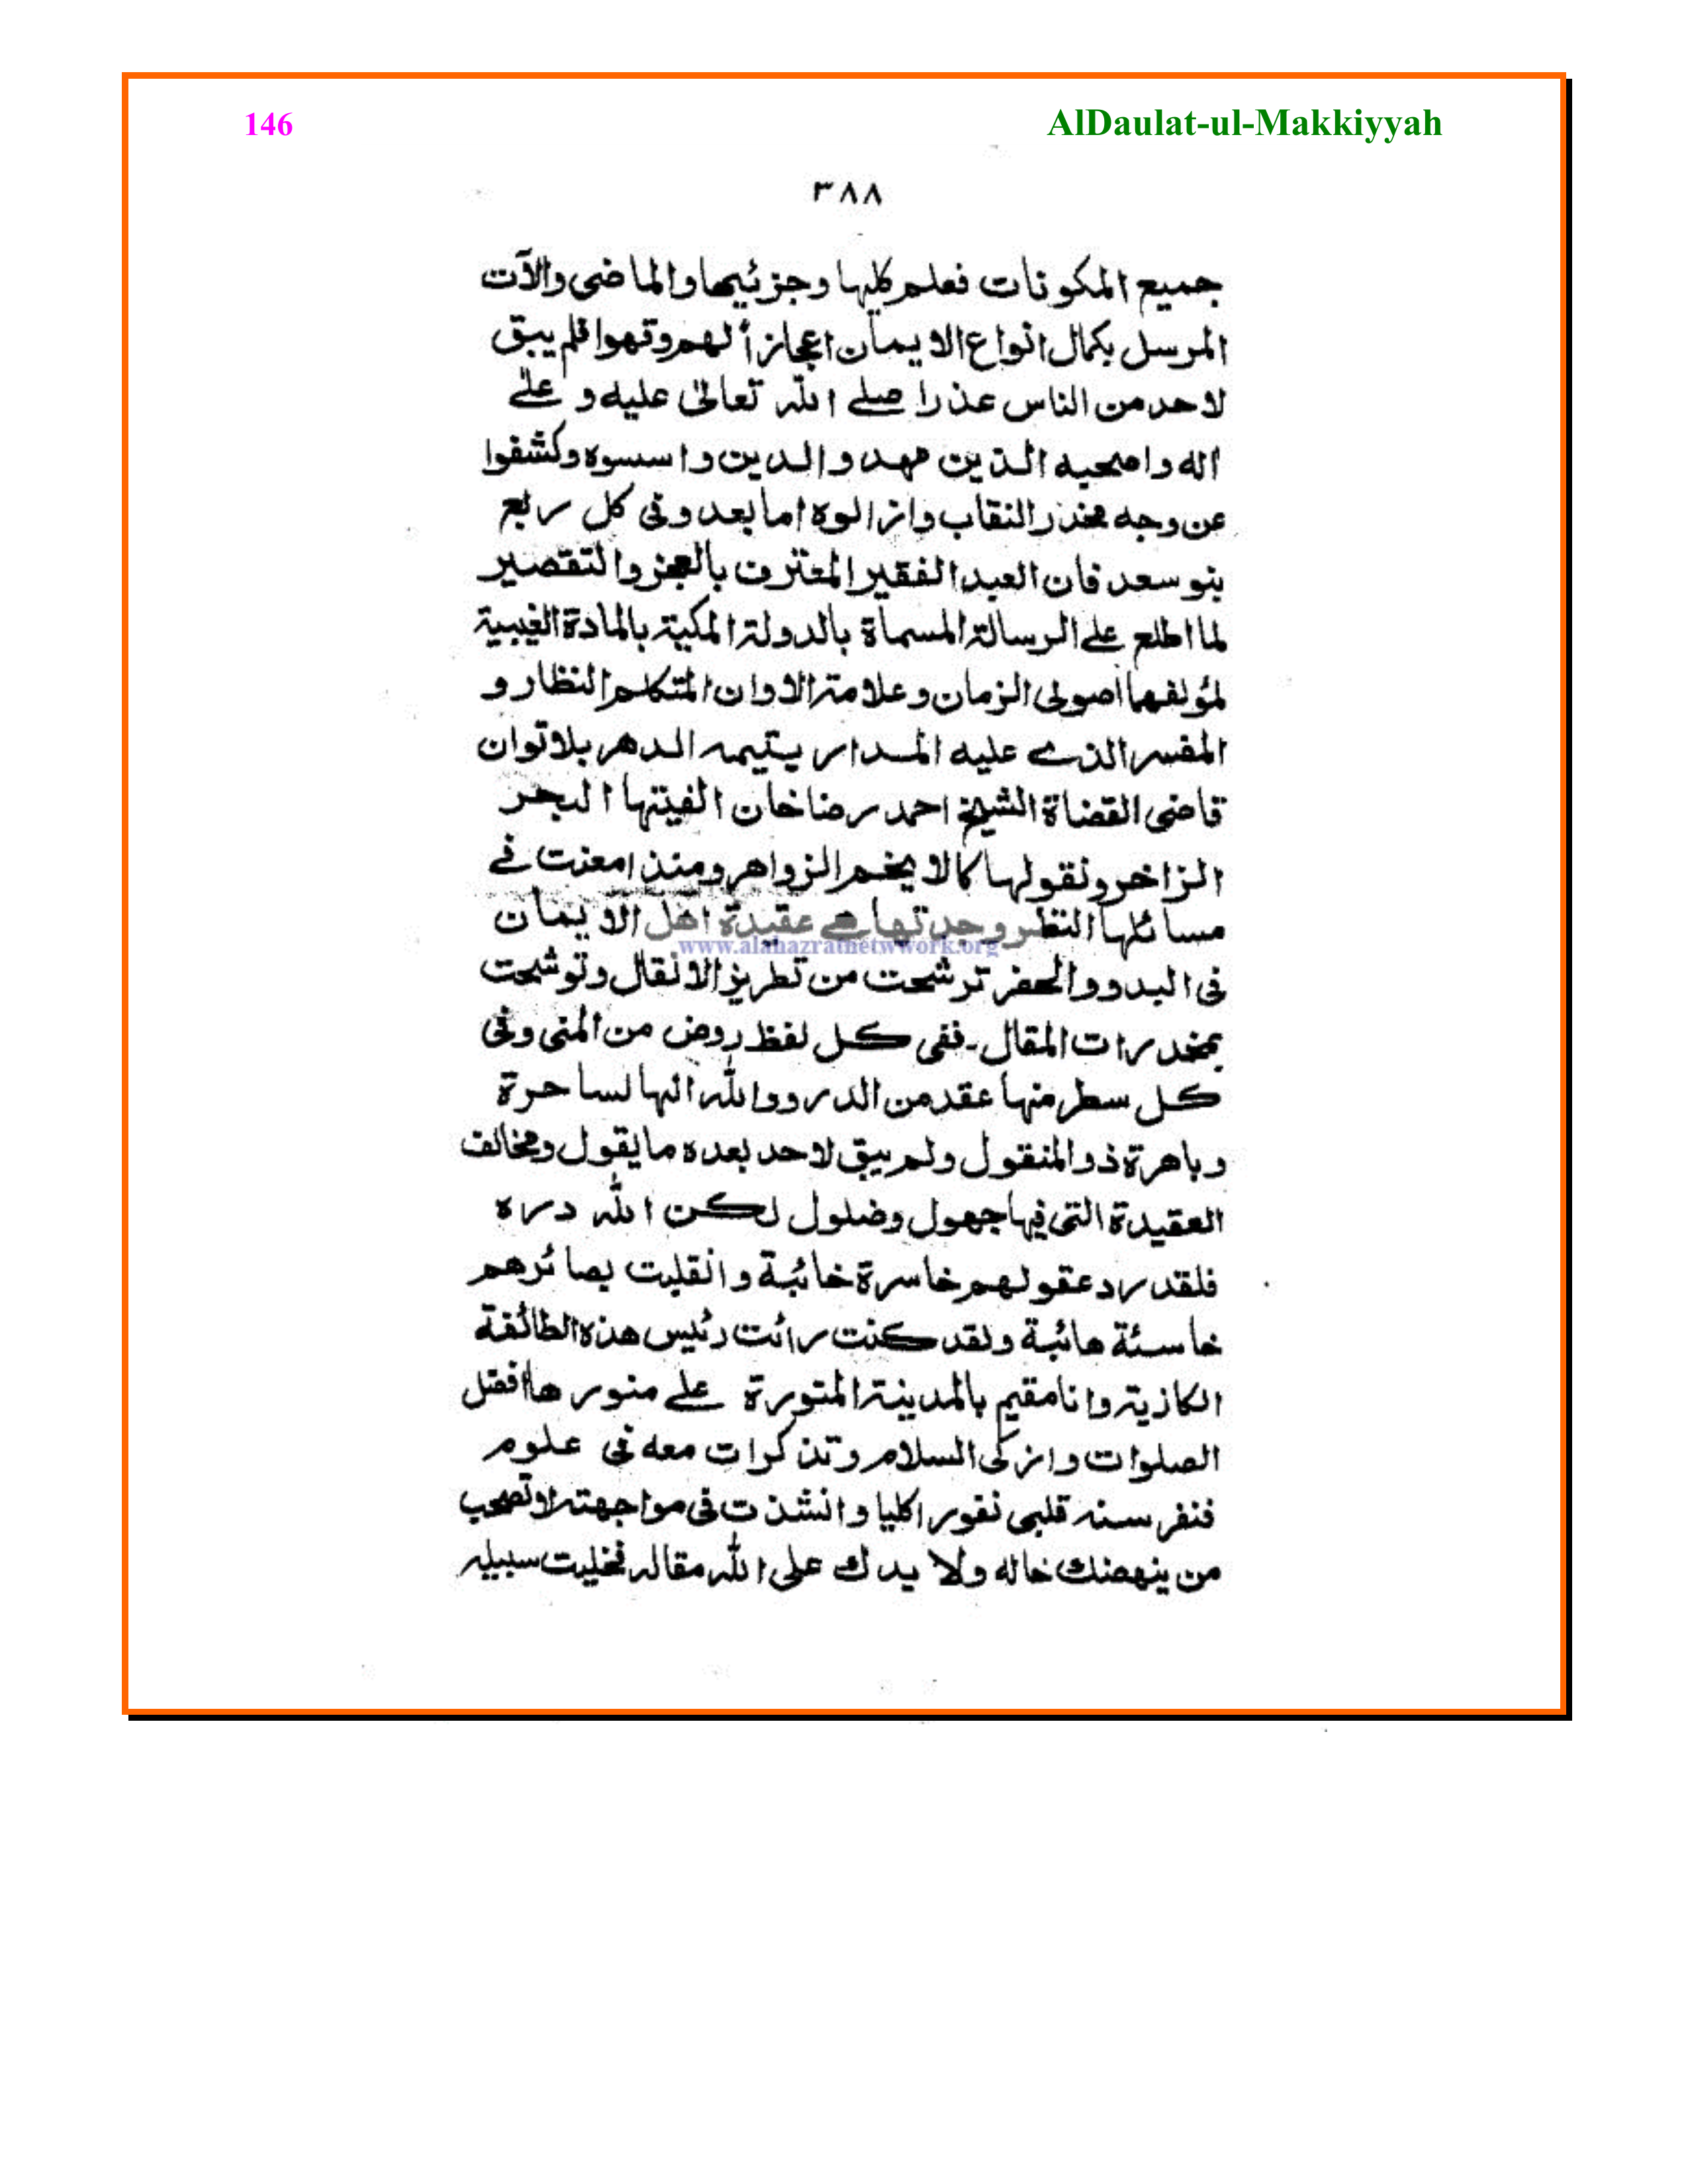 146
AlDaulat-ul-Makkiyyah
٣٨٨
جميع المكونات فعلم كليها وجزئيها والماضى والآت
المرسل بكمال انواع الايمان اعجازاً لهم وقهوا فلم يبق
لاحد من الناس عذرا صلے الله تعالیٰ عليه و علےٰ
اله واصحبه الذين مهد والدين واسسوه وكشفوا
عن وجه مخدر النقاب وازالوه اما بعد وفى كل ربع
بنو سعد فان العبد الفقير المعترف بالعجز والتقصير
لما اطلع على الرسالة المسماة بالدولة المكية بالمادة الغيبية
لمؤلفها اصولى الزمان وعلامة الاوان المتكلم النظار و
المفسر الذے عليه المدار يتيمه الدهر بلا توان
قاضى القضاة الشيخ احمد رضا خان الفيتها البحر
الزاخر ونقولها كالا يخم الزواهر ومنذ امعنت فے
مسائلها النظر وجدتها هے عقيدة اهل الايمان
فى البدو والحضر ترشحت من تطريز الانقال وتوشحت
بمخدرات المقال۔ ففى كل لفظ روض من المنى وفى
كل سطر منها عقد من الدرر ووالله انها لساحرة
وباهرة ذو المنقول ولم يبق لاحد بعده ما يقول ومخالف
العقيدة التى فيها جهول وضلول لكن الله دره
فلقد رد عقولهم خاسرة خائبة وانقلبت بصائرهم
خاسئة هائبة ولقد كنت رائت رئيس هذه الطائفة
الكاذبة وانا مقيم بالمدينة المنورة على منورها افضل
الصلوات وازكى السلام وتذكرات معه فى علوم
فنفر سنه قلبى نفورا كليا وانشذت فى مواجهته لا تصحب
من ينهضنك خاله ولا يدك على الله مقاله فخليت سبيله
www.alahazratnetwork.org